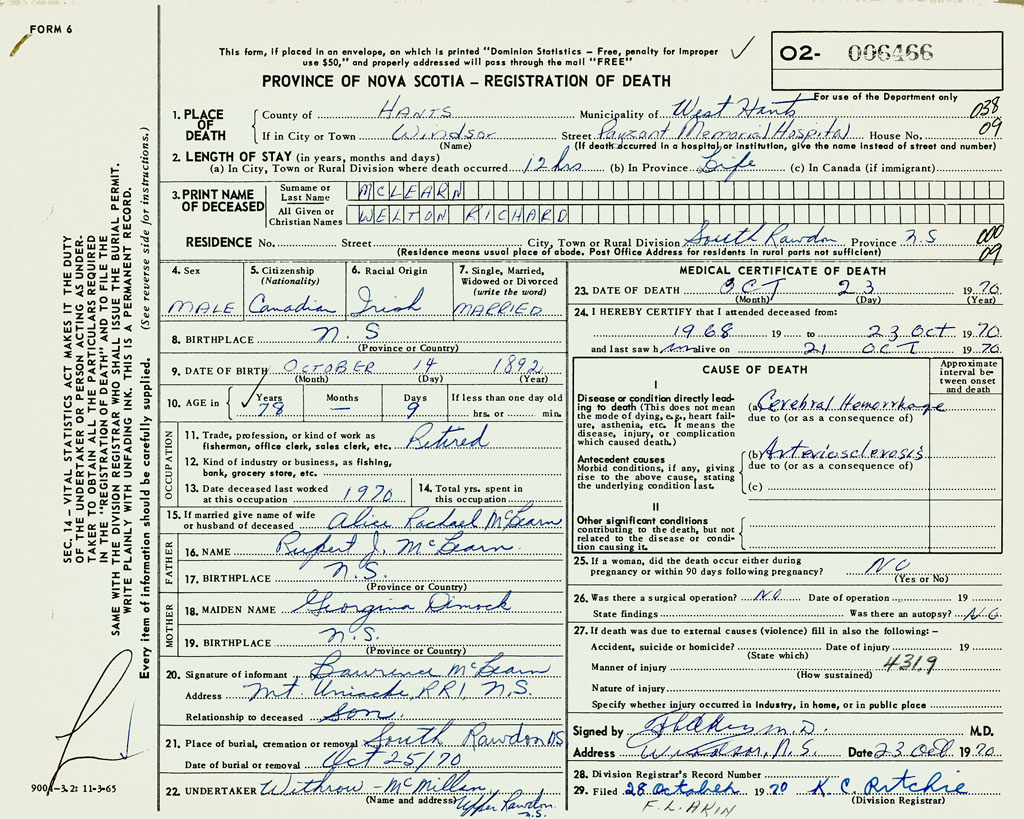 FORM 6
This form, if placed in an envelope, on which is printed "Dominion Statistics – Free, penalty for improper
use $50," and properly addressed will pass through the mail "FREE"
02- 006466
PROVINCE OF NOVA SCOTIA – REGISTRATION OF DEATH
For use of the Department only
1. PLACE OF DEATH
County of HANTS Municipality of West Hants 038
If in City or Town Windsor Street Payzant Memorial Hospital House No. 09
(Name) (If death occurred in a hospital or institution, give the name instead of street and number)
2. LENGTH OF STAY (in years, months and days)
(a) In City, Town or Rural Division where death occurred 12 hrs (b) In Province Life (c) In Canada (if immigrant)
3. PRINT NAME OF DECEASED
Surname or Last Name MCLEARN
All Given or Christian Names WELTON RICHARD
RESIDENCE No. Street City, Town or Rural Division South Rawdon Province N.S 000 09
(Residence means usual place of abode. Post Office Address for residents in rural parts not sufficient)
4. Sex MALE
5. Citizenship (Nationality) Canadian
6. Racial Origin Irish
7. Single, Married, Widowed or Divorced (write the word) MARRIED
8. BIRTHPLACE N. S
(Province or Country)
9. DATE OF BIRTH OCTOBER 14 1892
(Month) (Day) (Year)
10. AGE in Years 78 Months — Days 9 If less than one day old hrs. or min.
OCCUPATION
11. Trade, profession, or kind of work as fisherman, office clerk, sales clerk, etc. Retired
12. Kind of industry or business, as fishing, bank, grocery store, etc.
13. Date deceased last worked at this occupation 1970
14. Total yrs. spent in this occupation
15. If married give name of wife or husband of deceased Alice Rachael McLearn
FATHER
16. NAME Rupert J. McLearn.
17. BIRTHPLACE N.S.
(Province or Country)
MOTHER
18. MAIDEN NAME Georgina Dimock
19. BIRTHPLACE N.S.
(Province or Country)
20. Signature of informant Lawrence McLearn
Address Mt. Uniacke, RR1 N.S.
Relationship to deceased Son.
21. Place of burial, cremation or removal South Rawdon NS
Date of burial or removal Oct 25/70
22. UNDERTAKER Withrow - McMillan
(Name and address) Upper Rawdon N.S.
MEDICAL CERTIFICATE OF DEATH
23. DATE OF DEATH OCT 23 1970
(Month) (Day) (Year)
24. I HEREBY CERTIFY that I attended deceased from:
1968 19 to 23 Oct 1970
and last saw him alive on 21 OCT 1970
CAUSE OF DEATH
Approximate interval between onset and death
I
Disease or condition directly leading to death (This does not mean the mode of dying, e.g., heart failure, asthenia, etc. It means the disease, injury, or complication which caused death.)
(a) Cerebral Hemorrhage
due to (or as a consequence of)
Antecedent causes
Morbid conditions, if any, giving rise to the above cause, stating the underlying condition last.
(b) Arteriosclerosis
due to (or as a consequence of)
(c)
II
Other significant conditions contributing to the death, but not related to the disease or condition causing it.
25. If a woman, did the death occur either during pregnancy or within 90 days following pregnancy? NO
(Yes or No)
26. Was there a surgical operation? NO Date of operation 19
State findings Was there an autopsy? NO
27. If death was due to external causes (violence) fill in also the following: –
Accident, suicide or homicide? Date of injury 19
(State which) 4319
Manner of injury
(How sustained)
Nature of injury
Specify whether injury occurred in industry, in home, or in public place
Signed by M.D. M.D.
Address Windsor, N.S. Date 23 Oct 1970
28. Division Registrar's Record Number
29. Filed 28 October 1970 K. C. Ritchie
(Division Registrar)
F. L. AKIN
SEC. 14 – VITAL STATISTICS ACT MAKES IT THE DUTY
OF THE UNDERTAKER OR PERSON ACTING AS UNDER-
TAKER TO OBTAIN ALL THE PARTICULARS REQUIRED
IN THE "REGISTRATION OF DEATH" AND TO FILE THE
SAME WITH THE DIVISION REGISTRAR WHO SHALL ISSUE THE BURIAL PERMIT.
WRITE PLAINLY WITH UNFADING INK. THIS IS A PERMANENT RECORD.
Every item of information should be carefully supplied. (See reverse side for instructions.)
9004-3.2: 11-3-65